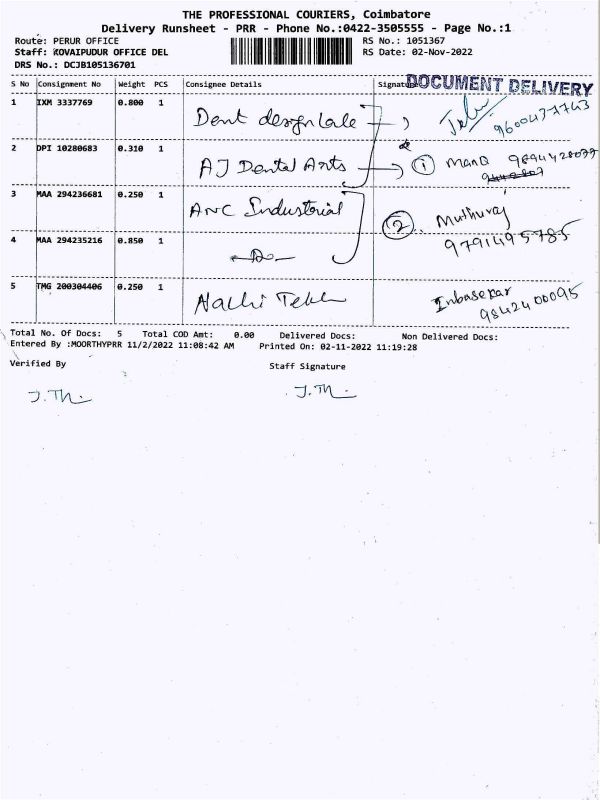 THE PROFESSIONAL COURIERS, Coimbatore
Delivery Runsheet - PRR - Phone No.:0422-3505555 - Page No.:1
Route: PERUR OFFICE RS No.: 1051367
Staff: KOVAIPUDUR OFFICE DEL RS Date: 02-Nov-2022
DRS No.: DCJB105136701
S No Consignment No Weight PCS Consignee Details Signature
DOCUMENT DELIVERY
1 IXM 3337769 0.800 1 Dent design 9600477743
2 DPI 10280683 0.310 1 AJ Dental Arts 1 mano
3 MAA 294236681 0.250 1 ANC Industorial
2 Muthuraj
9791495785
4 MAA 294235216 0.850 1 Do
5 TMG 200304406 0.250 1 Inbasekar
9842400095
Total No. Of Docs: 5 Total COD Amt: 0.00 Delivered Docs: Non Delivered Docs:
Entered By :MOORTHYPRR 11/2/2022 11:08:42 AM Printed On: 02-11-2022 11:19:28
Verified By Staff Signature